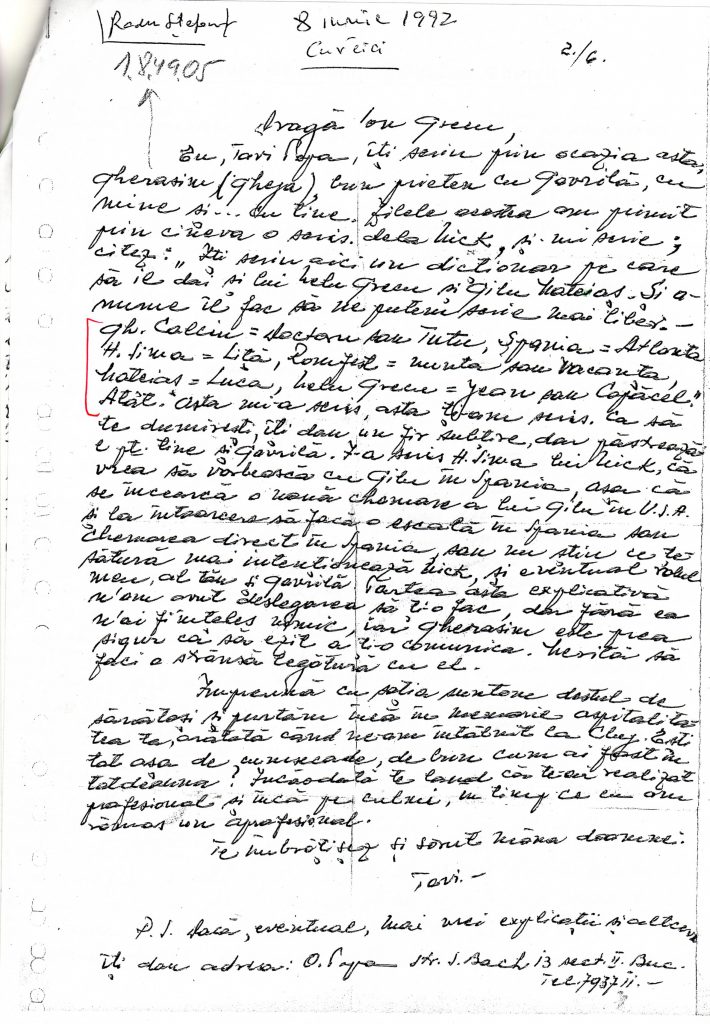 Radu Ștefan
8 iunie 1992
Curcici
2./6.
1.8.49.05
Dragă Ion Grecu,
Eu, Tavi Popa, îți scriu prin ocazia asta,
Gherasim (Gheja), bun prieten cu Gavrilă, cu
mine și... cu tine. Zilele acestea am primit
prin cineva o scris. dela Nick, și-mi scrie;
citez: „Iți scriu aici un dictionar pe care
să il dai si lui Nelu Grecu si Gilu Mateias. Si a-
nume il fac să ne putem scrie mai liber.–
Gh. Calciu = Doctoru sau Tutu, Spania = Atlanta
H. Sima = Lită, Romfest = nunta sau vacanta,
Mateias = Luca, Nelu Grecu = Jean sau Copăcel."
Atât. Asta mi-a scris, asta ti-am scris. Ca să
te dumiresti, iti dau un fir subtire, dar păstrează-
l pt. tine si Gavrilă. I-a scris H. Sima lui Nick, că
vrea să vorbească cu Gilu în Spania, asa că
se încearcă o nouă chemare a lui Gilu în U.S.A.
si la întoarcere să facă o escală în Spania sau
chemarea direct în Spania, sau nu stiu ce te-
sătură mai intentionează Nick, si eventual rolul
meu, al tău și Gavrilă. Partea asta explicativă
n'am avut deslegarea să ti-o fac, dar fără ea
n'ai fi înteles nimic, iar Gherasim este prea
sigur că să ezit a ti-o comunica. Merită să
faci o strânsă legătură cu el.
Împreună cu sotia suntem destul de
sănătosi si purtăm încă în memorie ospitalita-
tea ta, arătată când ne-am întâlnit la Cluj. Esti
tot asa de cumsecade, de bun cum ai fost în-
totdeauna? Incăodată te laud că te-ai realizat
profesional si încă pe culmi, în timp ce eu am
rămas un aprofesional.
Te îmbrătisez și sărut mâna doamnei.
Tavi.–
P.S. Dacă, eventual, mai vrei explicatii si altceva
iti dau adresa: O. Popa str. S. Bach 13 sect. II. Buc.
Tel. 7937 11.–